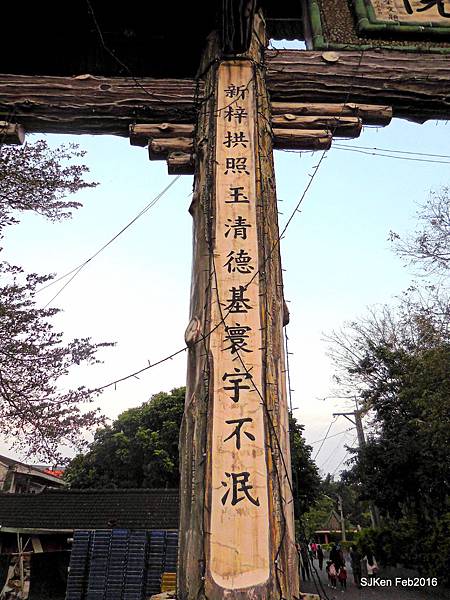 新梓拱照玉清德基寰宇不泯
SJKen Feb'2016